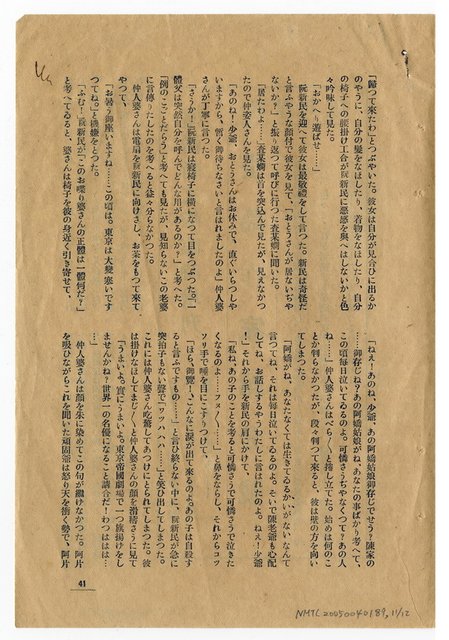 「歸つて來たわ」とつぶやいた。彼女は自分が見合ひに出るか
のやうに、自分の髮をなほしたり、着物をなほしたり、自分
の椅子への腰掛け工合が阮新民に惡感を與へはしないかと色
々吟味して見た。
「おかへり遊ばせ……」
阮新民を迎へて彼女は最敬禮をして言つた。新民は奇怪だ
と言ふやうな顏付で彼女を見て、「おとうさんが居ないぢや
ないか？」と振り返つて呼びに行つた査某嫺に聞いた。
「居たわよ……」査某嫺は首を突込んで見たが、見えなかつ
たので仲人婆さんを見た。
「あのね！少爺、おとうさんはお休みで、直ぐいらつしや
いますから、暫く御待ちなさいと言はれましたのよ」仲人婆
さんが丁寧に言つた。
「さうか！」阮新民は寢椅子に橫になつて目をつぶつた。一
體父は突然自分を呼んでどんな用があるのか？」と考へた。
「例のことだらう」と考へても見たが、見知らないこの老婆
に言傳りたしたのを考へると益々分らなかつた。
仲人婆さんは電扇を阮新民に向けさし、お茶をもつて來て
やつて、
「お暑う御座いますね……この頃は。東京は大變寒いです
つてね。」と機嫌をとつた。
「ふむ！」阮新民が「このお喋り婆さんの正體は一體何だ？」
と考へてゐると、婆さんは椅子を彼の身近く引き寄せて、
「ねえ！あのね、少爺、あの阿嬌姑娘御存じでせう？陳家の
……御存じね？あの阿嬌姑娘がね、あなたの事ばかり考へて、
この頃每日泣いてゐるのよ。可憐さうぢやなくつて？あの人
ね……」仲人婆さんはべら〳〵と捲し立てた。始めは何のこ
とか判らなかつたが、段々判つて來ると、彼は壁の方を向い
てしまつた。
「阿嬌がね、あなたなくては生きてゐるかいがないなんて
言つてね、それは每日泣いてゐるのよ。そいで陳老爺も心配
してね、お話しするやうわたしに言はれたのよ。ねえ！少爺
……」それから手を新民の肩にかけて、
「私ね、あの子のことを考ると可憐さうで可憐さうで泣きた
くなるのよ……フヌ〳〵……」と鼻をならし、それからコッ
ソリ手で唾を目にこすりつけて、
「ほら、御覽！、こんなに淚が出て來るのよ。あの子は自殺す
ると言ふですもの……」と言ひ終らない中に、阮新民が急に
突拍子もない聲で「ワッハハハ……」と笑ひ出してしまつた。
これには仲人婆さん吃驚してあつけにとられてしまつた。彼
は掛けなほしてまじ〳〵と仲人婆さんの顏を滑稽さうに見て
「うまいよ。實にうまいよ。東京帝國劇場で一つ旗揚けをし
ませんかね？世界一の名優になること請合だ！わつははは…
…」
仲人婆さんは顏を朱に染めてこの句が繼げなかつた。阿片
を吸ひながらこれを聞いた頑固爺は怒り天を衝く勢で、阿片
41
NMTL20050040189, 11/12